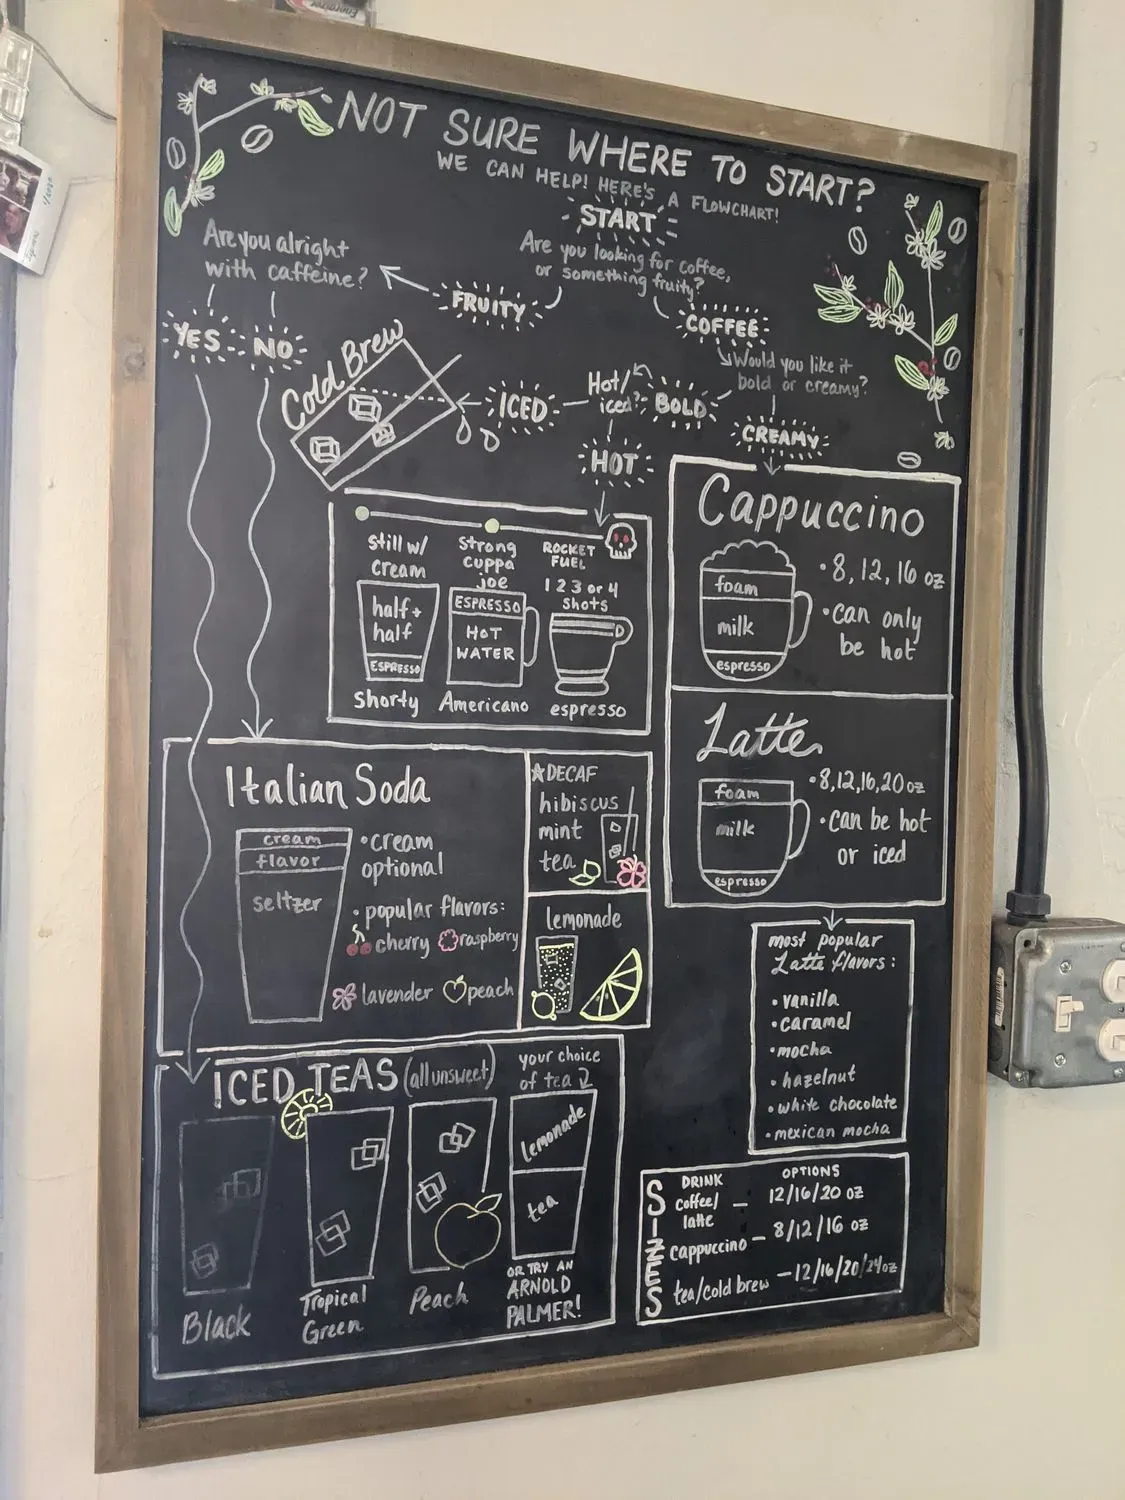 NOT SURE WHERE TO START?
WE CAN HELP! HERE'S A FLOWCHART!
START
Are you looking for coffee,
or something fruity?
FRUITY
Are you alright
with caffeine?
YES
NO
COFFEE
Would you like it
bold or creamy?
BOLD
Hot/
iced?
ICED
Cold Brew
HOT
CREAMY
still w/
cream
half +
half
ESPRESSO
Shorty
Strong
cuppa
joe
ESPRESSO
HOT
WATER
Americano
ROCKET
FUEL
1 2 3 or 4
shots
espresso
Cappuccino
foam
milk
espresso
• 8, 12, 16 oz
• can only
be hot
Latte
foam
milk
espresso
• 8,12,16,20 oz
• can be hot
or iced
most popular
Latte flavors:
• vanilla
• caramel
• mocha
• hazelnut
• white chocolate
• mexican mocha
Italian Soda
cream
flavor
seltzer
• cream
optional
• popular flavors:
cherry
raspberry
lavender
peach
☆DECAF
hibiscus
mint
tea
lemonade
ICED TEAS (all unsweet)
Black
Tropical
Green
Peach
your choice
of tea
lemonade
tea
OR TRY AN
ARNOLD
PALMER!
SIZES
DRINK
OPTIONS
coffee/
latte — 12/16/20 oz
cappuccino — 8/12/16 oz
tea/cold brew — 12/16/20/24oz